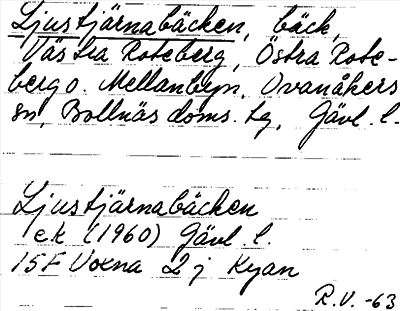 Ljustjärnabäcken, bäck,
Västra Roteberg, Östra Rote-
berg o. Mellanbyn, Ovanåkers
sn, Bollnäs doms. tg, Gävl. l.
Ljustjärnabäcken
ek (1960) Gävl. l.
15F Voxna 2 j Kyan
R.V. -63